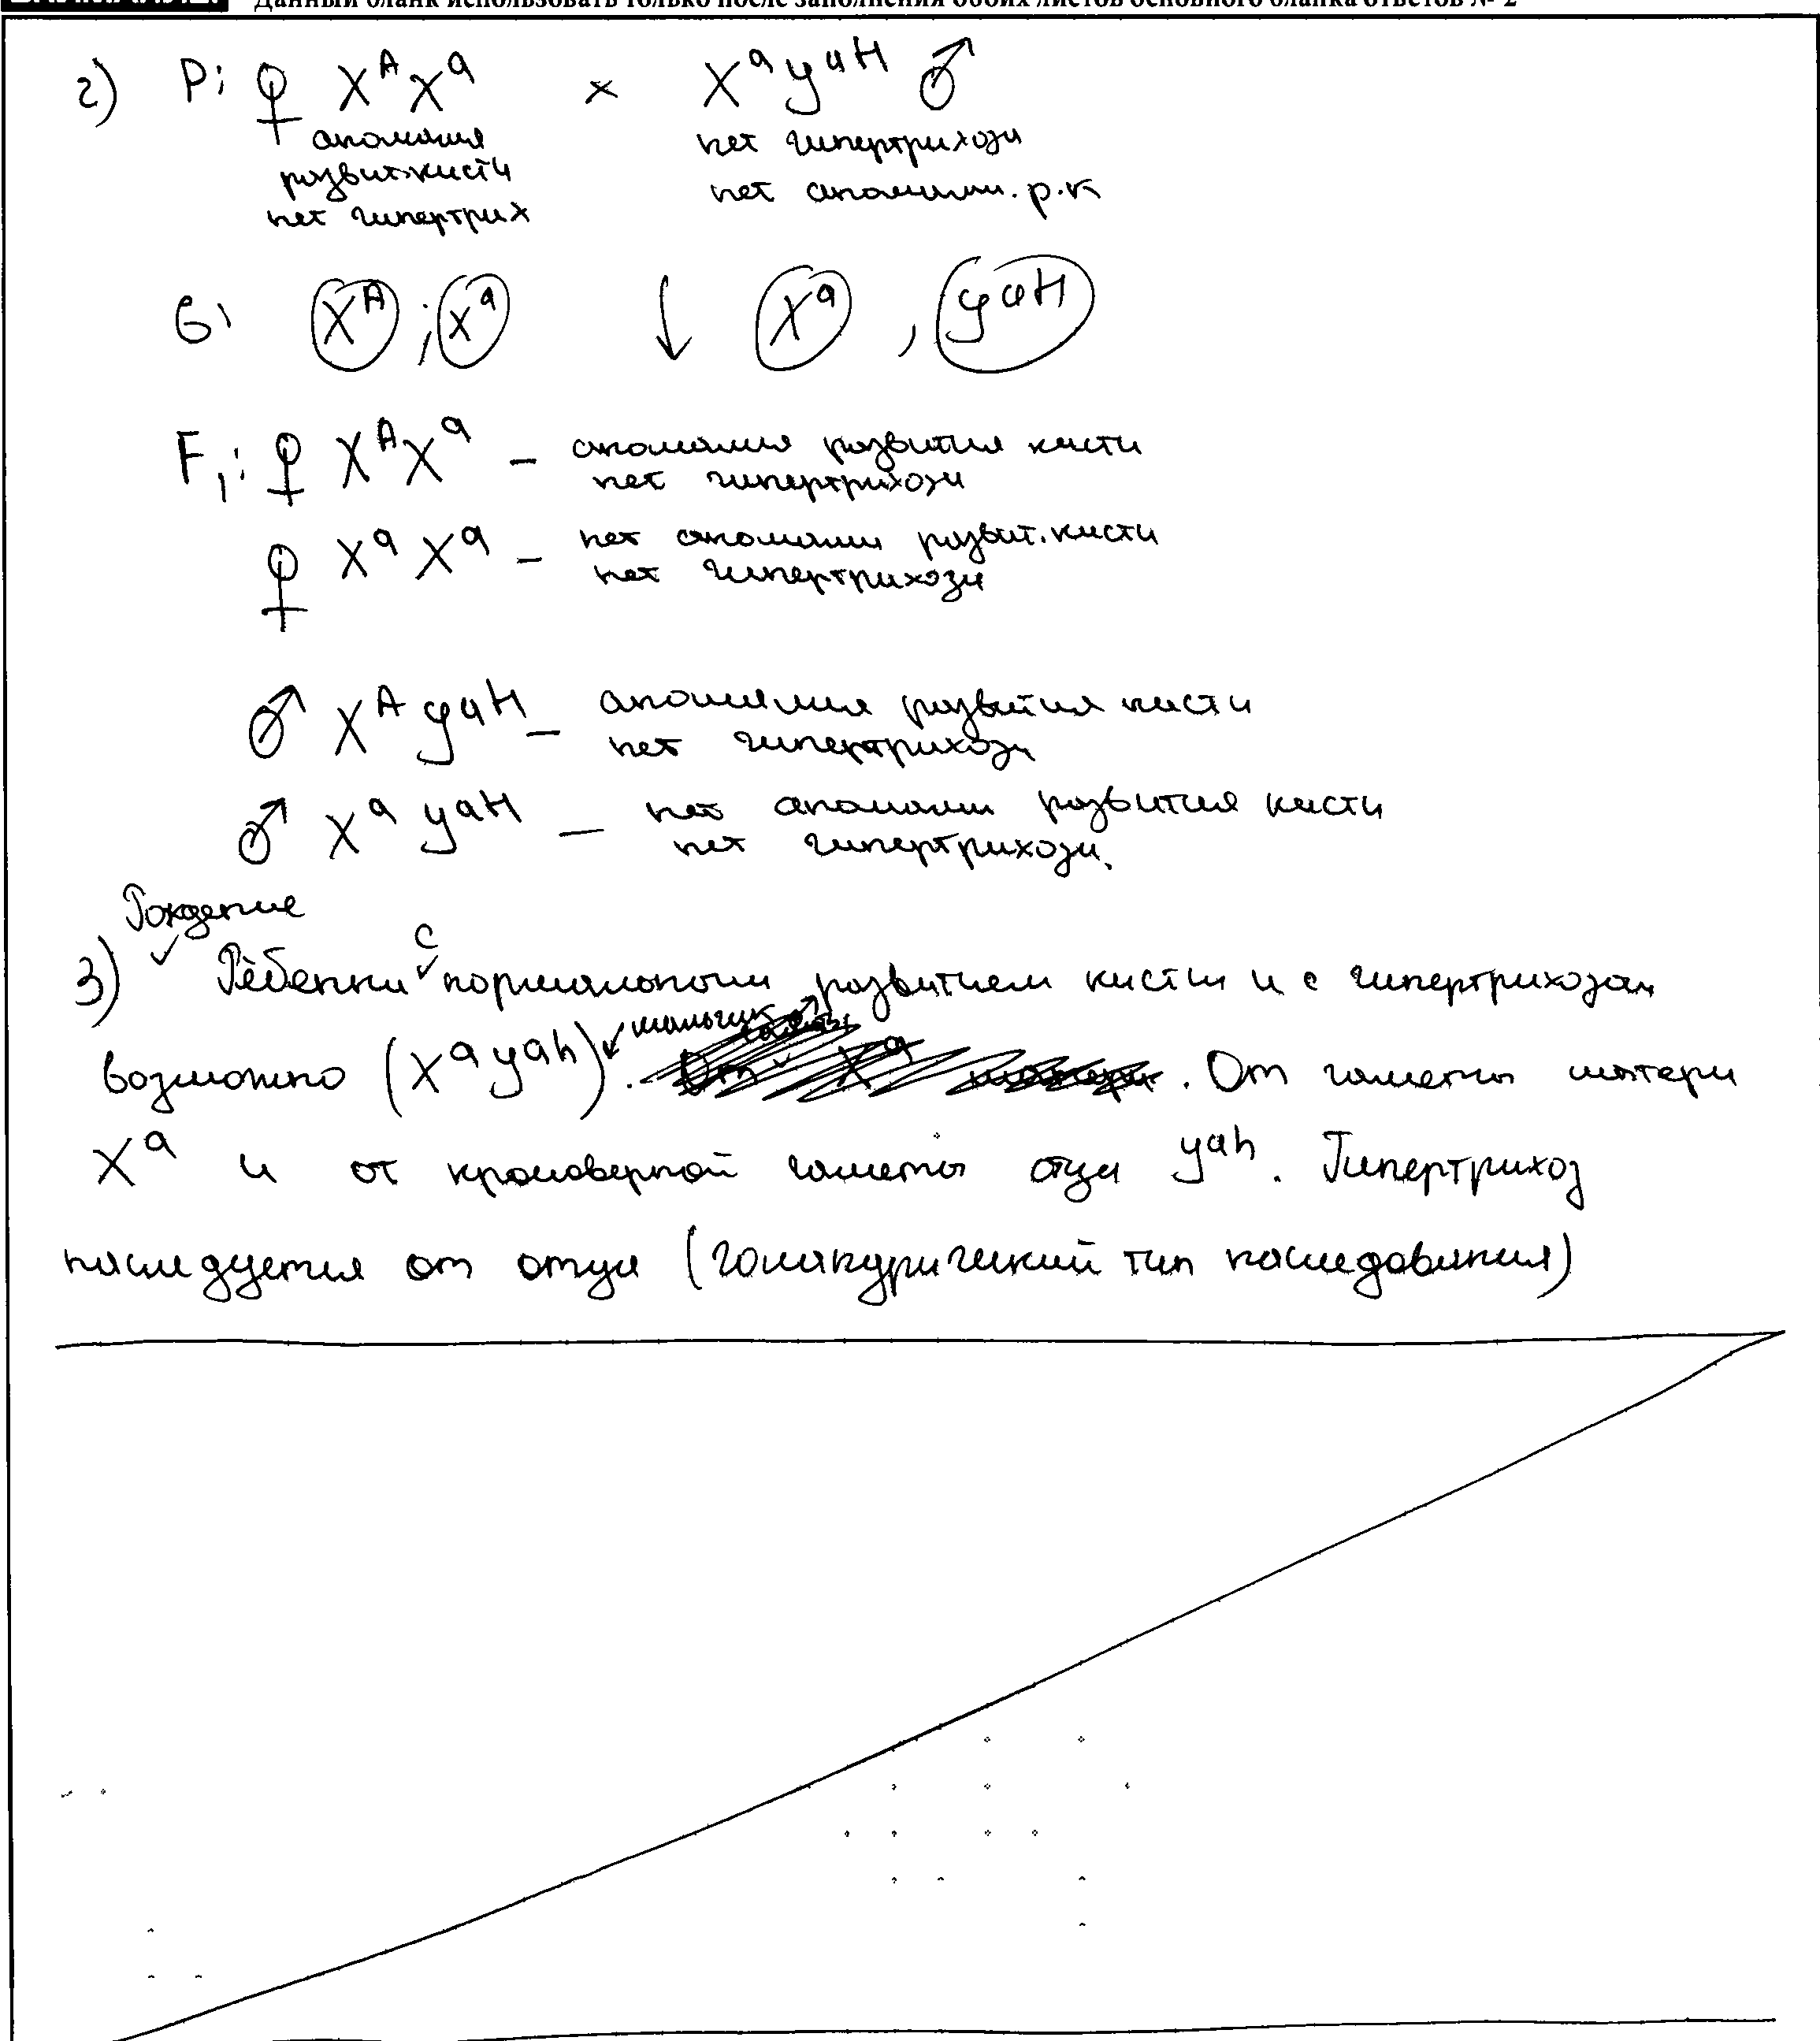 Данный бланк использовать только после заполнения обоих листов основного бланка ответов № 2
2) P: ♀ XᴬXᵃ × XᵃyᵃH ♂
аномалия нет гипертрихоза
развит.кисти нет аномалии. р.к
нет гипертрих
G: Xᴬ ; xᵃ ↓ Xᵃ , yᵃH
F₁: ♀ XᴬXᵃ – аномалия развития кисти
нет гипертрихоза
♀ XᵃXᵃ – нет аномалии развит. кисти
нет гипертрихоза
♂ XᴬyᵃH – аномалия развития кисти
нет гипертрихоза
♂ XᵃyᵃH – нет аномалии развития кисти
нет гипертрихоза.
Рождение
3) Ребенка с нормальным развитием кисти и с гипертрихозом
возможно (Xᵃyᵃh) мальчик. От гаметы матери
Xᵃ и от кроссоверной гаметы отца yᵃh. Гипертрихоз
наследуется от отца (голандрический тип наследования)